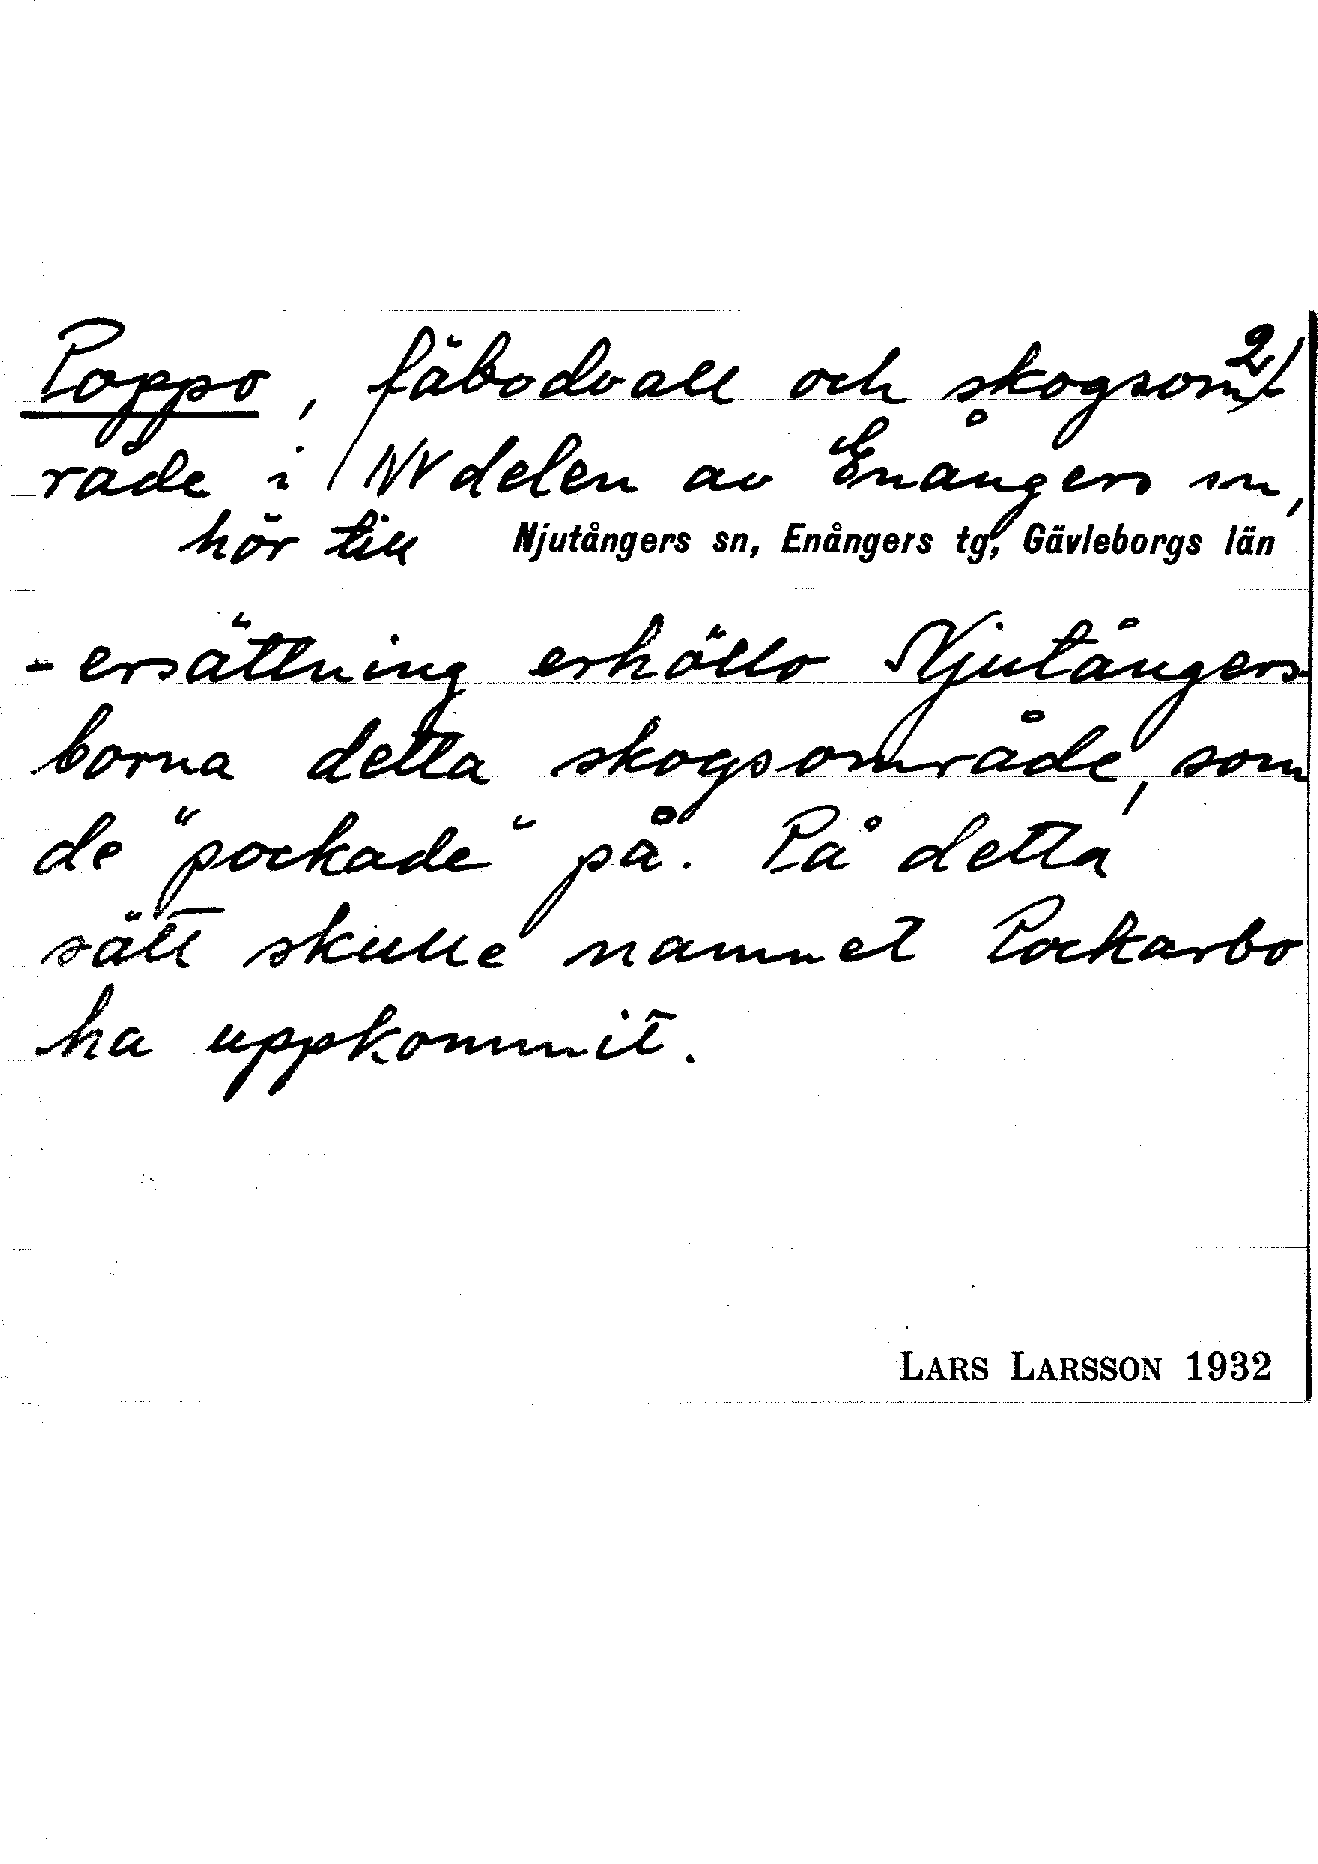 2/
Poppo, fäbodvall och skogsom-
råde i NV delen av Enångers sn,
hör till Njutångers sn, Enångers tg, Gävleborgs län
-ersättning erhöllo Njutångers-
borna detta skogsområde, som
de "pockade" på. På detta
sätt skulle namnet Pockarbo
ha uppkommit.
LARS LARSSON 1932